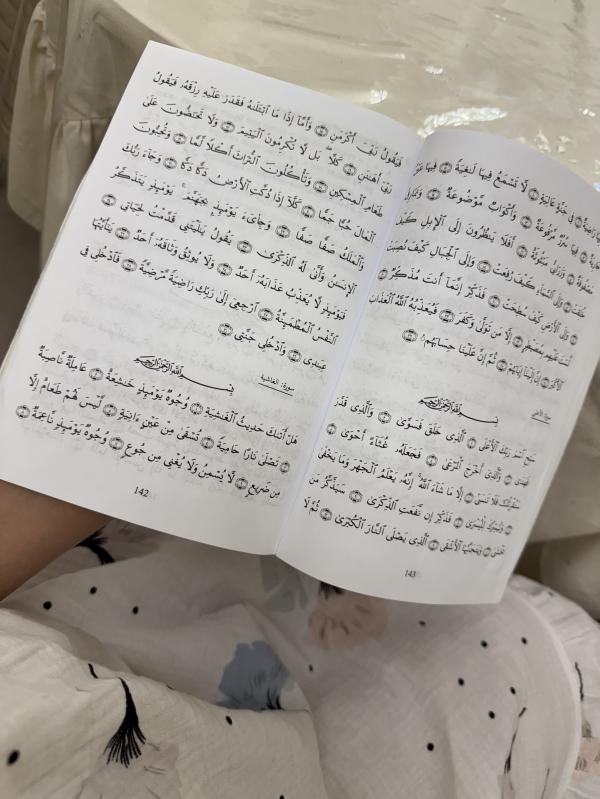 فَيَقُولُ رَبِّىٓ أَكْرَمَنِ وَأَمَّآ إِذَا مَا ٱبْتَلَىٰهُ فَقَدَرَ عَلَيْهِ رِزْقَهُۥ فَيَقُولُ
رَبِّىٓ أَهَٰنَنِ كَلَّا ۖ بَل لَّا تُكْرِمُونَ ٱلْيَتِيمَ وَلَا تَحَٰٓضُّونَ عَلَىٰ
طَعَامِ ٱلْمِسْكِينِ وَتَأْكُلُونَ ٱلتُّرَاثَ أَكْلًا لَّمًّا وَتُحِبُّونَ
ٱلْمَالَ حُبًّا جَمًّا كَلَّآ إِذَا دُكَّتِ ٱلْأَرْضُ دَكًّا دَكًّا وَجَآءَ رَبُّكَ
وَٱلْمَلَكُ صَفًّا صَفًّا وَجِا۟ىٓءَ يَوْمَئِذٍۭ بِجَهَنَّمَ ۚ يَوْمَئِذٍ يَتَذَكَّرُ
ٱلْإِنسَٰنُ وَأَنَّىٰ لَهُ ٱلذِّكْرَىٰ يَقُولُ يَٰلَيْتَنِى قَدَّمْتُ لِحَيَاتِى
فَيَوْمَئِذٍ لَّا يُعَذِّبُ عَذَابَهُۥٓ أَحَدٌ وَلَا يُوثِقُ وَثَاقَهُۥٓ أَحَدٌ يَٰٓأَيَّتُهَا
ٱلنَّفْسُ ٱلْمُطْمَئِنَّةُ ٱرْجِعِىٓ إِلَىٰ رَبِّكِ رَاضِيَةً مَّرْضِيَّةً فَٱدْخُلِى فِى
عِبَٰدِى وَٱدْخُلِى جَنَّتِى
سورة: الغاشية
بِسْمِ ٱللَّهِ ٱلرَّحْمَٰنِ ٱلرَّحِيمِ
هَلْ أَتَىٰكَ حَدِيثُ ٱلْغَٰشِيَةِ وُجُوهٌ يَوْمَئِذٍ خَٰشِعَةٌ عَامِلَةٌ نَّاصِبَةٌ
تَصْلَىٰ نَارًا حَامِيَةً تُسْقَىٰ مِنْ عَيْنٍ ءَانِيَةٍ لَّيْسَ لَهُمْ طَعَامٌ إِلَّا
مِن ضَرِيعٍ لَّا يُسْمِنُ وَلَا يُغْنِى مِن جُوعٍ وُجُوهٌ يَوْمَئِذٍ نَّاعِمَةٌ
142
رَاضِيَةٌ فِى جَنَّةٍ عَالِيَةٍ لَّا تَسْمَعُ فِيهَا لَٰغِيَةً فِيهَا
جَارِيَةٌ فِيهَا سُرُرٌ مَّرْفُوعَةٌ وَأَكْوَابٌ مَّوْضُوعَةٌ وَنَمَارِقُ
مَصْفُوفَةٌ وَزَرَابِىُّ مَبْثُوثَةٌ أَفَلَا يَنظُرُونَ إِلَى ٱلْإِبِلِ كَيْفَ
خُلِقَتْ وَإِلَى ٱلسَّمَآءِ كَيْفَ رُفِعَتْ وَإِلَى ٱلْجِبَالِ كَيْفَ نُصِبَتْ
وَإِلَى ٱلْأَرْضِ كَيْفَ سُطِحَتْ فَذَكِّرْ إِنَّمَآ أَنتَ مُذَكِّرٌ
لَّسْتَ عَلَيْهِم بِمُصَيْطِرٍ إِلَّا مَن تَوَلَّىٰ وَكَفَرَ فَيُعَذِّبُهُ ٱللَّهُ ٱلْعَذَابَ
ٱلْأَكْبَرَ إِنَّ إِلَيْنَآ إِيَابَهُمْ ثُمَّ إِنَّ عَلَيْنَا حِسَابَهُم
سورة: الأعلى
بِسْمِ ٱللَّهِ ٱلرَّحْمَٰنِ ٱلرَّحِيمِ
سَبِّحِ ٱسْمَ رَبِّكَ ٱلْأَعْلَى ٱلَّذِى خَلَقَ فَسَوَّىٰ وَٱلَّذِى قَدَّرَ
فَهَدَىٰ وَٱلَّذِىٓ أَخْرَجَ ٱلْمَرْعَىٰ فَجَعَلَهُۥ غُثَآءً أَحْوَىٰ
سَنُقْرِئُكَ فَلَا تَنسَىٰٓ إِلَّا مَا شَآءَ ٱللَّهُ ۚ إِنَّهُۥ يَعْلَمُ ٱلْجَهْرَ وَمَا يَخْفَىٰ
وَنُيَسِّرُكَ لِلْيُسْرَىٰ فَذَكِّرْ إِن نَّفَعَتِ ٱلذِّكْرَىٰ سَيَذَّكَّرُ مَن
يَخْشَىٰ وَيَتَجَنَّبُهَا ٱلْأَشْقَى ٱلَّذِى يَصْلَى ٱلنَّارَ ٱلْكُبْرَىٰ ثُمَّ لَا
143